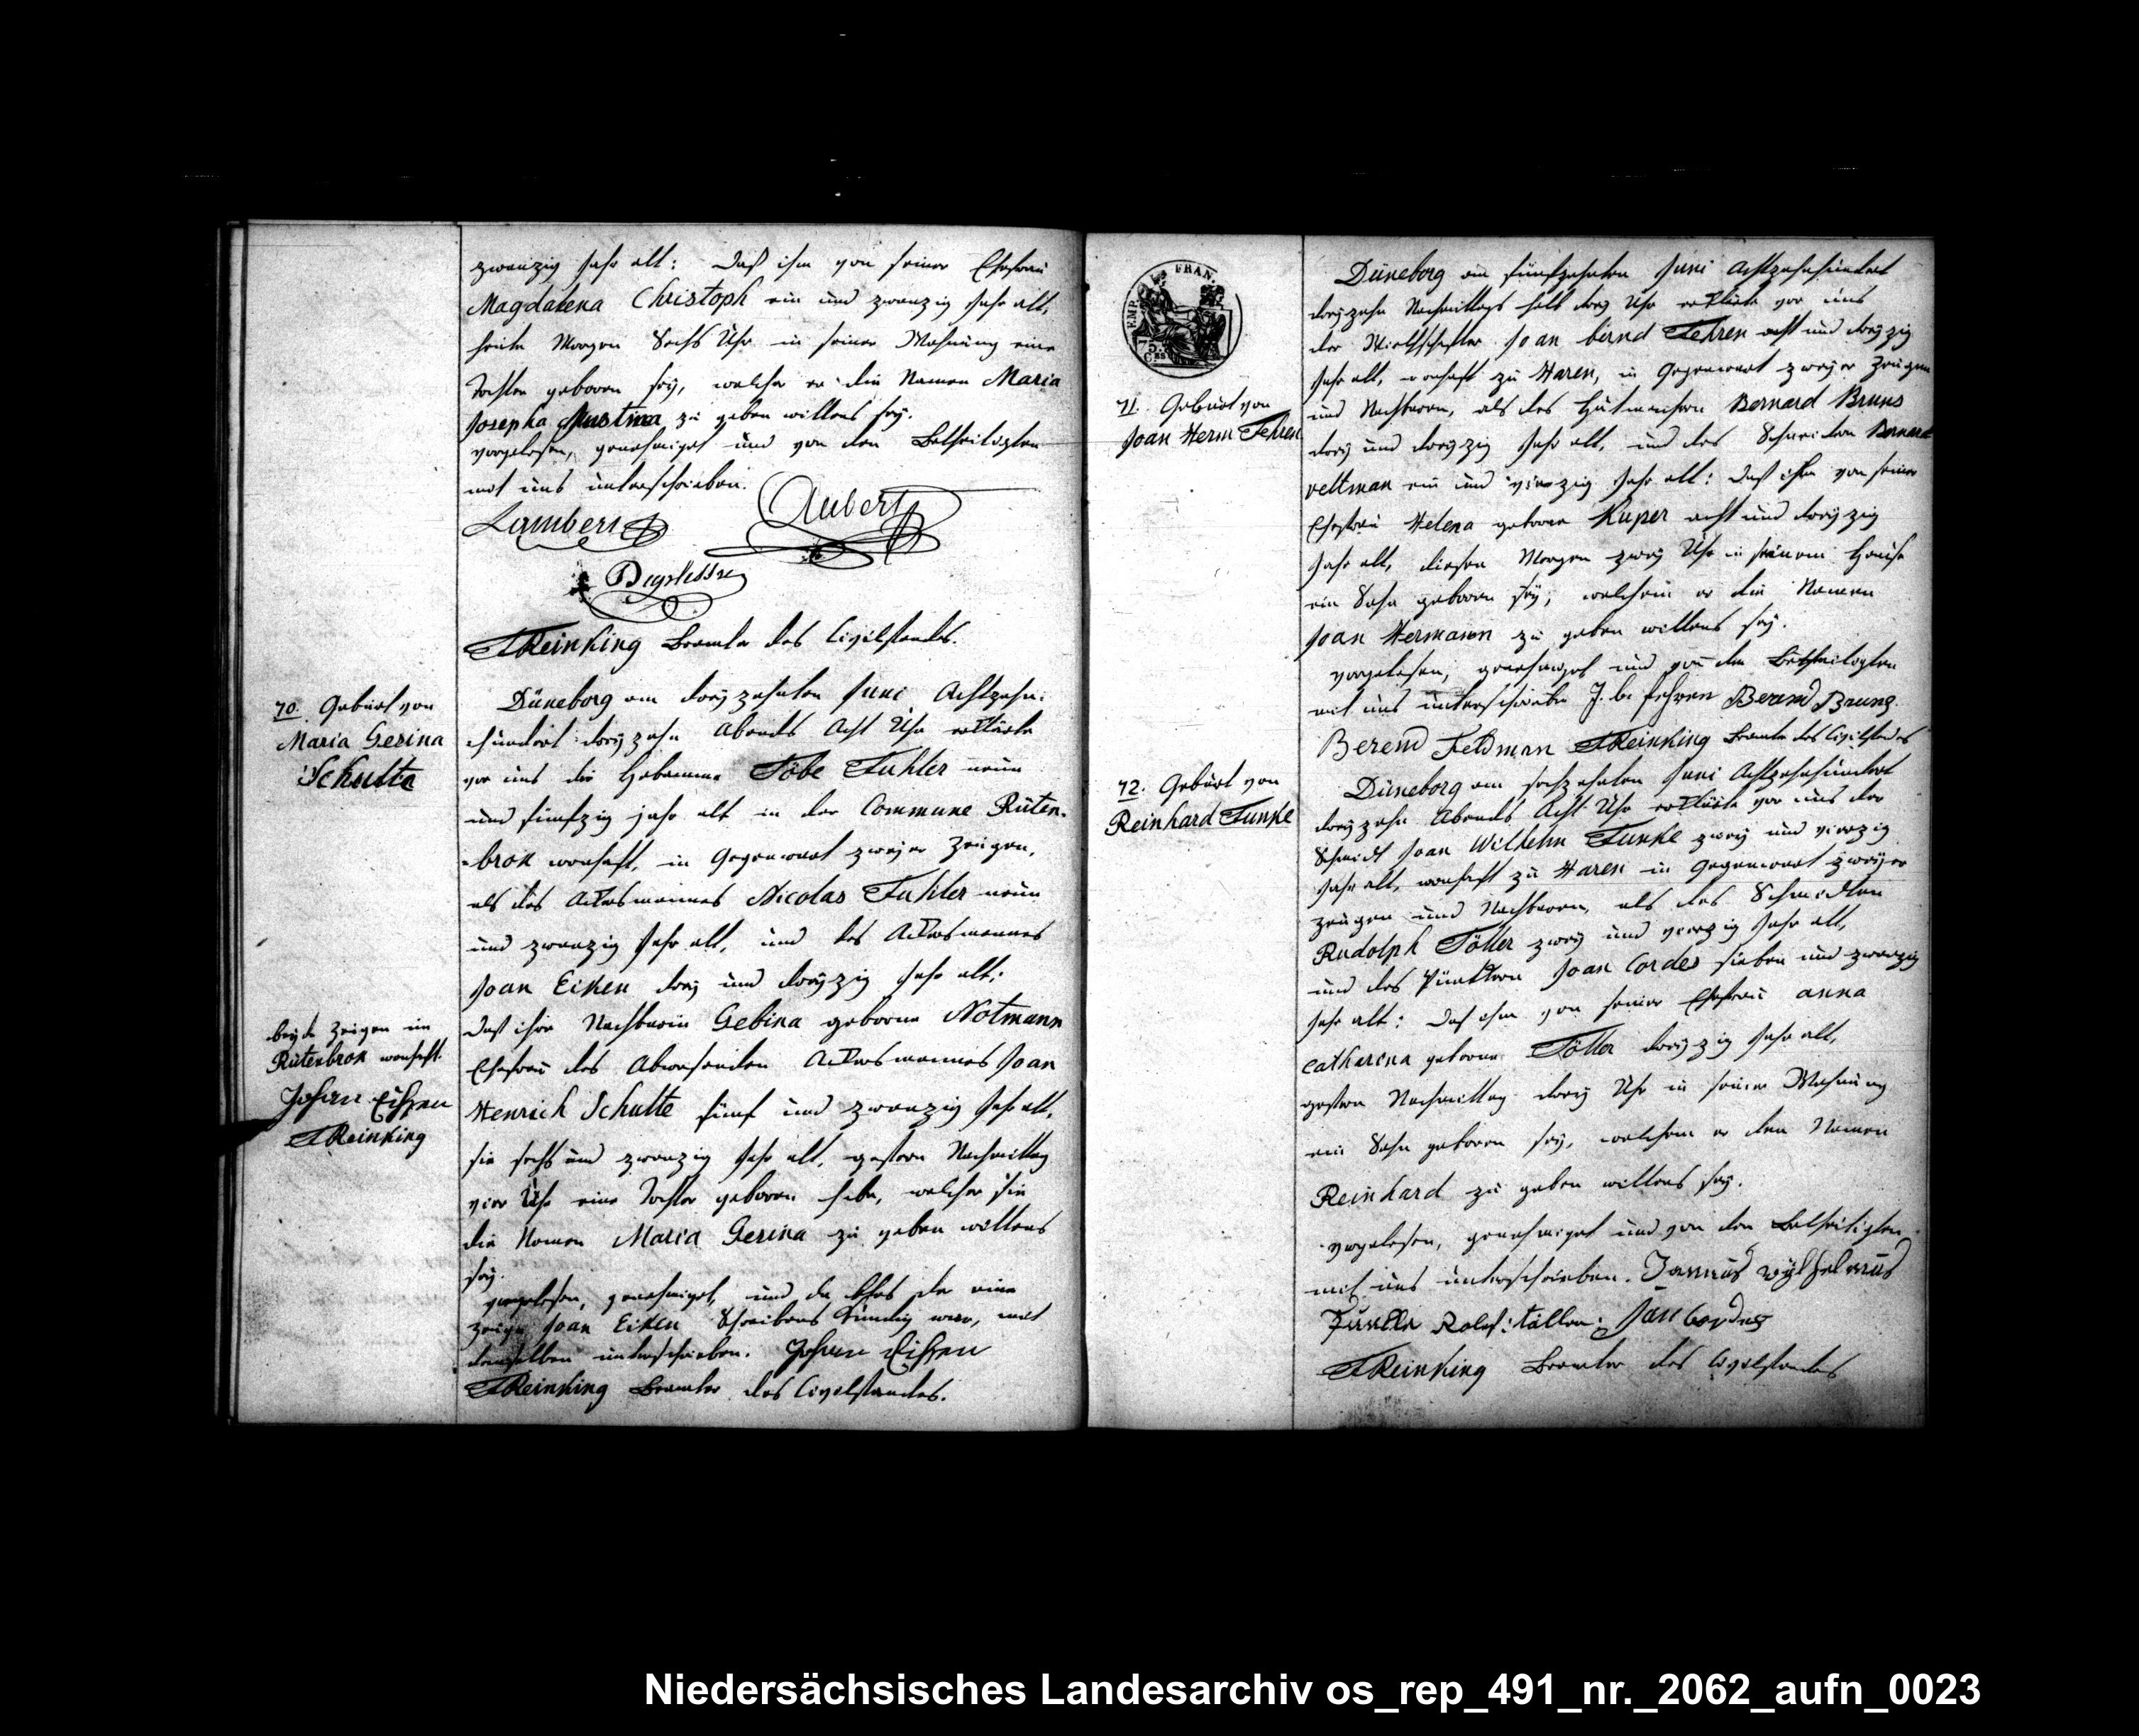 zwanzig Jahr alt: Daß ihm von seiner Ehefrau
Magdalena Christoph ein und zwanzig Jahr alt,
heute Morgen Sechs Uhr in seiner Wohnung eine
Tochter geboren sey, welcher er die Namen Maria
Josepha Justina zu geben willens sey.
vorgelesen, genehmiget und von den Betheiligten
mit uns unterschrieben.
Lambert Aubert
TReinking Beamter des Civilstandes.
70. Geburt von
Maria Gesina
Schulte
Düneborg am dreyzehnten Juni Achtzehn-
hundert dreyzehn Abends Acht Uhr erklärte
vor uns die Hebamme Tobe Fuhler neun
und fünfzig jahr alt in der Commune Rüten-
-brok wonhaft, in Gegenwart zweyer Zeugen,
als des Ackersmannes Nicolas Fuhler neun
und zwanzig Jahr alt, und des Ackersmannes
Joan Eiken drey und dreyzig Jahr alt:
Daß ihre Nachbarin Gebina geborne Notmann
Ehefrau des Abwesenden Ackersmannes Joan
Henrich Schulte fünf und zwanzig Jahr alt,
sie sechs und zwanzig Jahr alt, gestern Nachmittag
vier Uhr eine Tochter geboren habe, welcher sie
die Namen Maria Gesina zu geben willens
sey.
vorgelesen, genehmiget, und da blos der eine
Zeuge Joan Eiken Schreibens kündig war, mit
demselben unterschrieben. Johann Eihsen
TReinking Beamter des Civilstandes.
beyde Zeugen im
Rütenbrok wonhaft.
Johann Eihsen
TReinking
EMP. FRAN.
75 Ces
71. Geburt von
Joan Herm Fehren
Düneborg am fünfzehnten Juni Achtzehnhundert
dreyzehn Nachmittags halb drey Uhr erklärte vor uns
der Wirthschafter Joan bernd Fehren acht und dreyzig
Jahr alt, wonhaft zu Haren, in Gegenwart zweyer Zeugen
und Nachbaren, als des Hutmachers Bernard Bruns
drey und dreyzig Jahr alt, und des Schneiders Bernard
veltman ein und vierzig Jahr alt: Daß ihm von seiner
Ehefrau Helena geborne Kuper acht und dreyzig
Jahr alt, diesen Morgen zwey Uhr in seinem Hause
ein Sohn geboren sey, welchem er die Namen
Joan Hermann zu geben willens sey.
vorgelesen, genehmiget und von den Betheiligten
mit uns unterschrieben J. b. fehren Berend Bruns
Berend Feldman TReinking Beamter des Civilstandes
72. Geburt von
Reinhard Funke
Düneborg am sechzehnten Juni Achtzehnhundert
dreyzehn Abends Acht Uhr erklärte vor uns der
Schmidt Joan Wilhelm Funke zwey und vierzig
Jahr alt, wonhaft zu Haren in Gegenwart zweyer
Zeugen und Nachbaren, als des Schmidten
Rudolph Töller zwey und vierzig Jahr alt,
und des Joan Cordes sieben und zwanzig
Jahr alt: Daß ihm von seiner Ehefrau anna
catharina geborne Töller dreyzig Jahr alt,
gestern Nachmittag drey Uhr in seiner Wohnung
ein Sohn geboren sey, welchem er den Namen
Reinhard zu geben willens sey.
vorgelesen, genehmiget und von den Betheiligten
mit uns unterschrieben. Jannus wylhelmus
Funke Rolef: tallen: Jan Cordes
TReinking Beamter des Civilstandes
Niedersächsisches Landesarchiv os_rep_491_nr._2062_aufn_0023